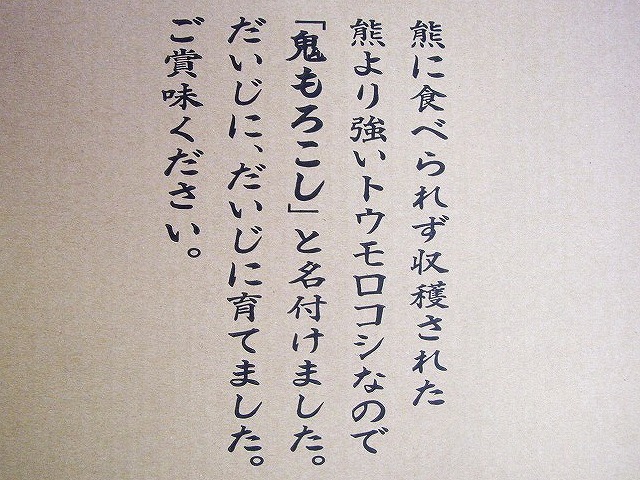 熊に食べられず収穫された
熊より強いトウモロコシなので
「鬼もろこし」と名付けました。
だいじに、だいじに育てました。
ご賞味ください。